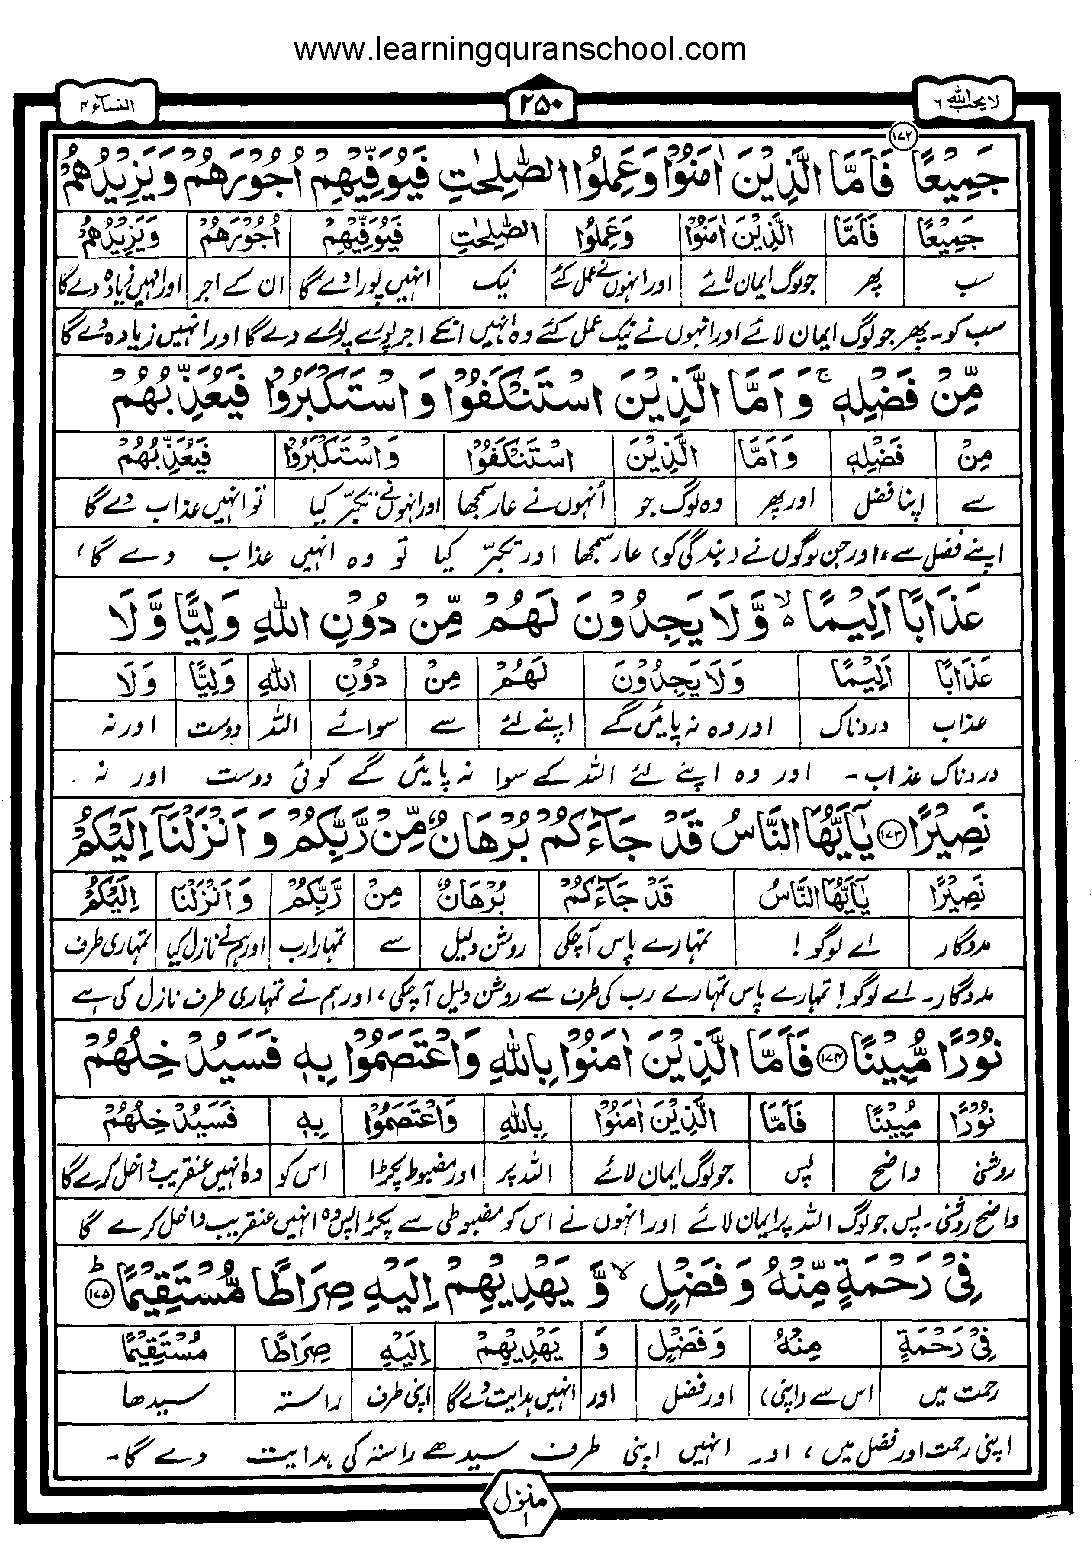 www.learningquranschool.com
لا يحب الله ٦ ۲۵۰ النسآء ۴
جَمِيْعًا ﴿۱۷۲﴾ فَاَمَّا الَّذِيْنَ اٰمَنُوْا وَعَمِلُوا الصّٰلِحٰتِ فَيُوَفِّيْهِمْ اُجُوْرَهُمْ وَيَزِيْدُهُمْ
جَمِيْعًا فَاَمَّا الَّذِيْنَ اٰمَنُوْا وَعَمِلُوا الصّٰلِحٰتِ فَيُوَفِّيْهِمْ اُجُوْرَهُمْ وَيَزِيْدُهُمْ
سب پھر جو لوگ ایمان لائے اور انہوں نے عمل کئے نیک انہیں پورا دے گا ان کے اجر اور انہیں زیادہ دے گا
سب کو۔ پھر جو لوگ ایمان لائے اور انہوں نے نیک عمل کئے وہ انہیں انکے اجر پورے پورے دے گا اور انہیں زیادہ دے گا
مِّنْ فَضْلِهٖ ۚ وَاَمَّا الَّذِيْنَ اسْتَنْكَفُوْا وَاسْتَكْبَرُوْا فَيُعَذِّبُهُمْ
مِنْ فَضْلِهٖ وَاَمَّا الَّذِيْنَ اسْتَنْكَفُوْا وَاسْتَكْبَرُوْا فَيُعَذِّبُهُمْ
سے اپنا فضل اور پھر وہ لوگ جو اُنہوں نے عار سمجھا اور انہوں نے تکبّر کیا تو انہیں عذاب دے گا
اپنے فضل سے، اور جن لوگوں نے (بندگی کو) عار سمجھا اور تکبّر کیا تو وہ انہیں عذاب دے گا،
عَذَابًا اَلِيْمًا ۙ وَّلَا يَجِدُوْنَ لَهُمْ مِّنْ دُوْنِ اللّٰهِ وَلِيًّا وَّلَا
عَذَابًا اَلِيْمًا وَلَا يَجِدُوْنَ لَهُمْ مِنْ دُوْنِ اللّٰهِ وَلِيًّا وَلَا
عذاب دردناک اور وہ نہ پائیں گے اپنے لئے سے سوائے اللہ دوست اور نہ
دردناک عذاب۔ اور وہ اپنے لئے اللہ کے سوا نہ پائیں گے کوئی دوست اور نہ
نَصِيْرًا ﴿۱۷۳﴾ يٰۤاَيُّهَا النَّاسُ قَدْ جَآءَكُمْ بُرْهَانٌ مِّنْ رَّبِّكُمْ وَاَنْزَلْنَاۤ اِلَيْكُمْ
نَصِيْرًا يٰۤاَيُّهَا النَّاسُ قَدْ جَآءَكُمْ بُرْهَانٌ مِنْ رَّبِّكُمْ وَاَنْزَلْنَا اِلَيْكُمْ
مددگار اے لوگو! تمہارے پاس آچکی روشن دلیل سے تمہارا رب اور ہم نے نازل کیا تمہاری طرف
مددگار۔ اے لوگو! تمہارے پاس تمہارے رب کی طرف سے روشن دلیل آچکی، اور ہم نے تمہاری طرف نازل کی ہے
نُوْرًا مُّبِيْنًا ﴿۱۷۴﴾ فَاَمَّا الَّذِيْنَ اٰمَنُوْا بِاللّٰهِ وَاعْتَصَمُوْا بِهٖ فَسَيُدْخِلُهُمْ
نُوْرًا مُبِيْنًا فَاَمَّا الَّذِيْنَ اٰمَنُوْا بِاللّٰهِ وَاعْتَصَمُوْا بِهٖ فَسَيُدْخِلُهُمْ
روشنی واضح پس جو لوگ ایمان لائے اللہ پر اور مضبوط پکڑا اس کو وہ انہیں عنقریب داخل کرے گا
واضح روشنی۔ پس جو لوگ اللہ پر ایمان لائے اور انہوں نے اس کو مضبوطی سے پکڑا پس وہ انہیں عنقریب داخل کرے گا
فِيْ رَحْمَةٍ مِّنْهُ وَفَضْلٍ ۙ وَّيَهْدِيْهِمْ اِلَيْهِ صِرَاطًا مُّسْتَقِيْمًا ؕ ﴿۱۷۵﴾
فِيْ رَحْمَةٍ مِنْهُ وَفَضْلٍ وَّ يَهْدِيْهِمْ اِلَيْهِ صِرَاطًا مُسْتَقِيْمًا
رحمت میں اس سے (اپنی) اور فضل اور انہیں ہدایت دے گا اپنی طرف راستہ سیدھا
اپنی رحمت اور فضل میں، اور انہیں اپنی طرف سیدھے راستہ کی ہدایت دے گا۔
منزل ۱